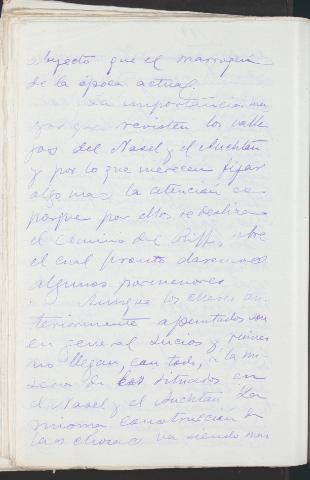 objecto que el marroquí
de la época actual.
La importancia ma
yor que revisten los valle
jos del Nasel y el Auchtán
y por lo que merecen fijar
algo mas la atención es
porque por ellos se desliza
el camino del Riff, sobre
el cual pronto daremos
algunos pormenores.
Aunque los an
teriormente apuntados son
en general sucios y ruines
no llegan, con todo, a la mi
seria de los situados en
el Nasel y el Auchtán. La
misma construcción de
las chozas va siendo mas